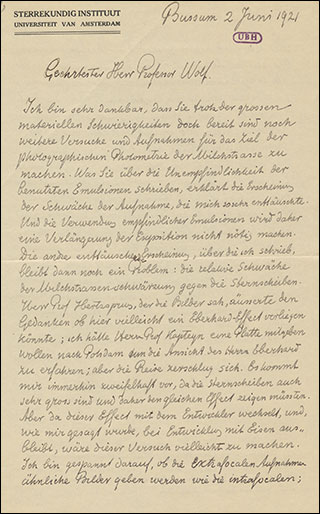 STERREKUNDIG INSTITUUT
UNIVERSITEIT VAN AMSTERDAM
Bussum 2 Juni 1921
UBH
Geehrtester Herr Profesor Wolf.
Ich bin sehr dankbar, dan Sie trotz der grossen
materiellen Schwierigkeiten doch bereit sind noch
weitere Versuche und Aufnahmen für das Ziel der
photographischen Photometrie der Milchstrasse zu
machen. Was Sie über die Unempfindlichkeit der
benutzten Emulsionen schrieben, erklärt die Erscheinung
der Schwäche der Aufnahme, die mich sochr enttäuschte.
Und die Verwendung empfindlicher Emulsionen wird daher
eine Verlängerung der Exposition nicht nötig machen.
Die andre enttäuschende Erscheinung, über die ich schrieb,
bleibt dann noch ein Problem: die relative Schwäche
der Milchstrassenschwärzung gegen die Sternscheiben.
Herr Prof Hertzsprung, der die Bilder sah, äuserte den
Gedanken ob hier vielleicht ein Eberhard-Effect vorliegen
könnte; ich hätte Herrn Prof Kapteyn eine Platte mitgeben
wollen nach Potsdam um die Ansicht des Herrn Eberhard
zu erfahren; aber die Reise zerschlug sich. Es kommt
mir immerhin zweifelhaft vor, da die Sternscheiben auch
sehr gross sind und daher den gleichen Effect zeigen müssten.
Aber da dieser Effect mit dem Entwickler wechselt, und,
wie mir gesagt wurde, bei Entwicklung mit Eisen aus-
bleibt, wäre dieser Versuch vielleicht zu machen.
Ich bin gespannt darauf, ob die extrafocalen Aufnahmen
ähnliche Bilder geben werden wie die intrafocalen;